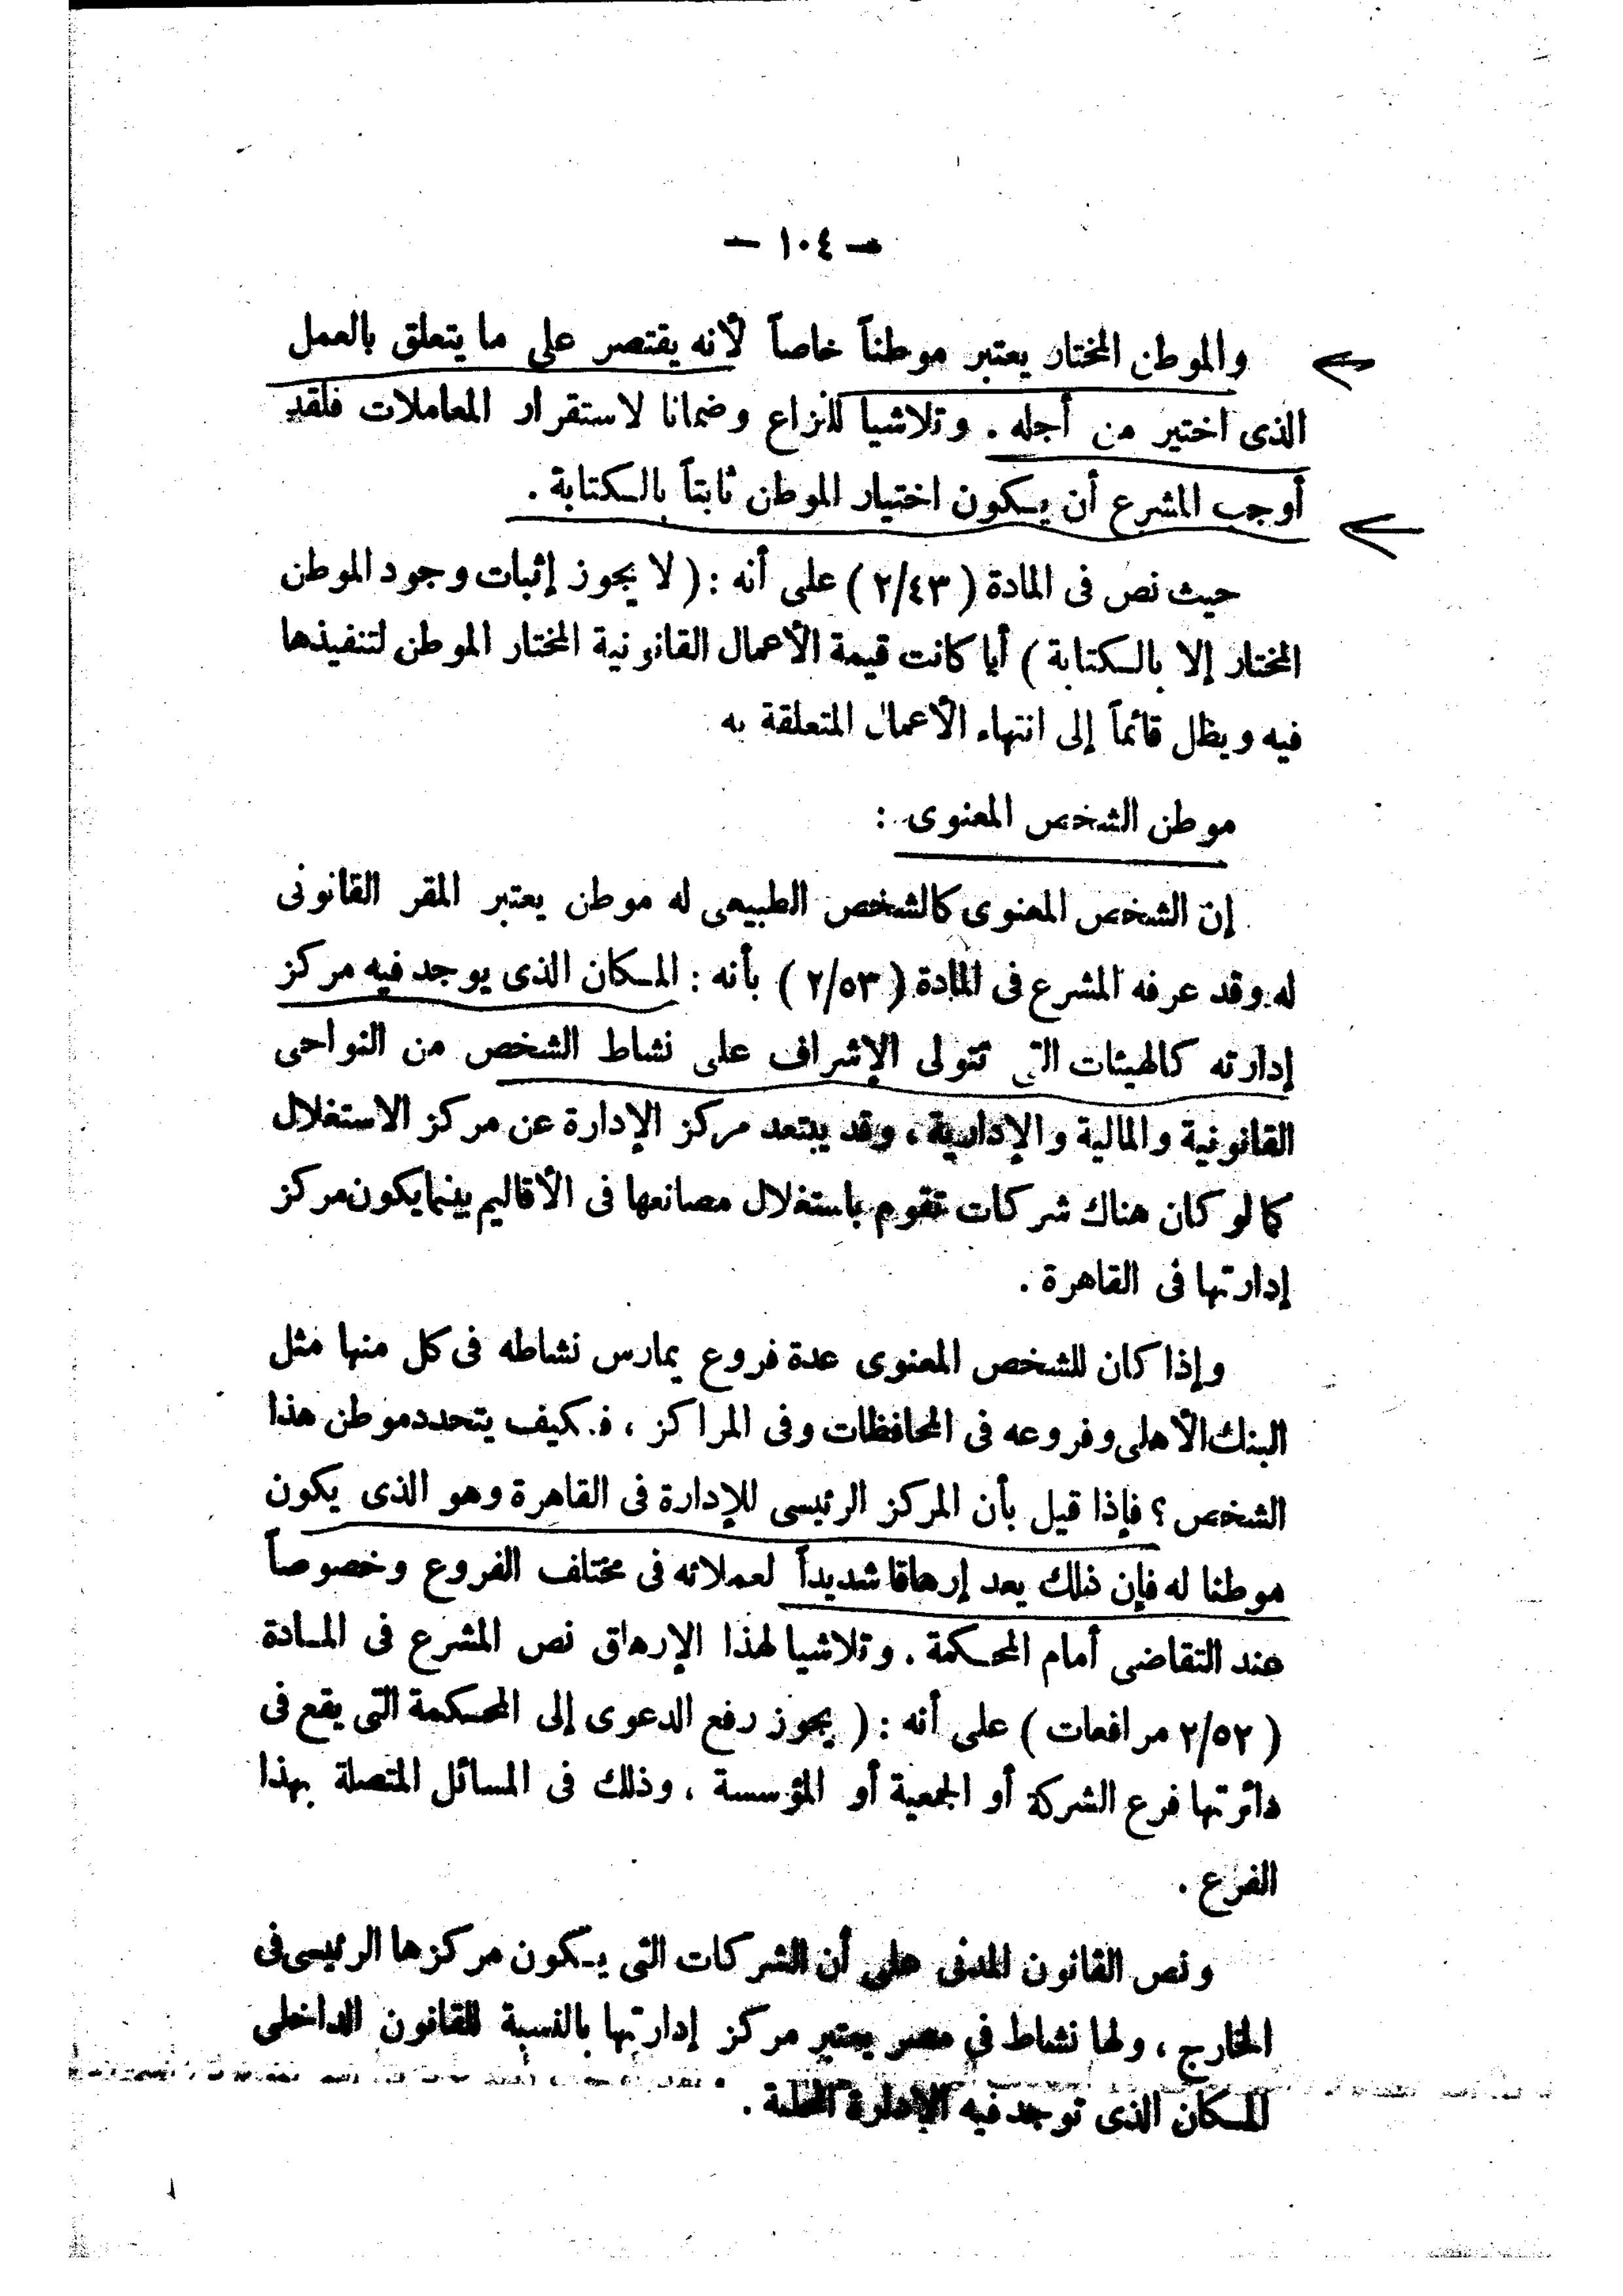 — ١٠٤ —
والموطن المختار يعتبر موطناً خاصاً لأنه يقتصر على ما يتعلق بالعمل
الذى اختير من أجله . وتلاشيا للنزاع وضمانا لاستقرار المعاملات فلقد
أوجب المشرع أن يكون اختيار الموطن ثابتاً بالكتابة .
حيث نص فى المادة ( ٢/٤٣ ) على أنه : ( لا يجوز إثبات وجود الموطن
المختار إلا بالكتابة ) أيا كانت قيمة الأعمال القانونية المختار الموطن لتنفيذها
فيه ويظل قائماً إلى انتهاء الأعمال المتعلقة به
موطن الشخص المعنوى :
إن الشخص المعنوى كالشخص الطبيعى له موطن يعتبر المقر القانونى
له وقد عرفه المشرع فى المادة ( ٢/٥٣ ) بأنه : المكان الذى يوجد فيه مركز
إدارته كالهيئات التى تتولى الإشراف على نشاط الشخص من النواحى
القانونية والمالية والإدارية ، وقد يبتعد مركز الإدارة عن مركز الاستغلال
كما لو كان هناك شركات تقوم باستغلال مصانعها فى الأقاليم بينما يكون مركز
إدارتها فى القاهرة .
وإذا كان للشخص المعنوى عدة فروع يمارس نشاطه فى كل منها مثل
البنك الأهلى وفروعه فى المحافظات وفى المراكز ، فكيف يتحدد موطن هذا
الشخص ؟ فإذا قيل بأن المركز الرئيسى للإدارة فى القاهرة وهو الذى يكون
موطنا له فإن ذلك يعد إرهاقا شديداً لعملائه فى مختلف الفروع وخصوصاً
عند التقاضى أمام المحكمة . وتلاشيا لهذا الإرهاق نص المشرع فى المادة
( ٢/٥٢ مرافعات ) على أنه : ( يجوز رفع الدعوى إلى المحكمة التى يقع فى
دائرتها فرع الشركة أو الجمعية أو المؤسسة ، وذلك فى المسائل المتصلة بهذا
الفرع .
ونص القانون المدنى على أن الشركات التى يكون مركزها الرئيسى فى
الخارج ، ولها نشاط فى مصر يعتبر مركز إدارتها بالنسبة للقانون الداخلى
المكان الذى توجد فيه الإدارة المحلية .